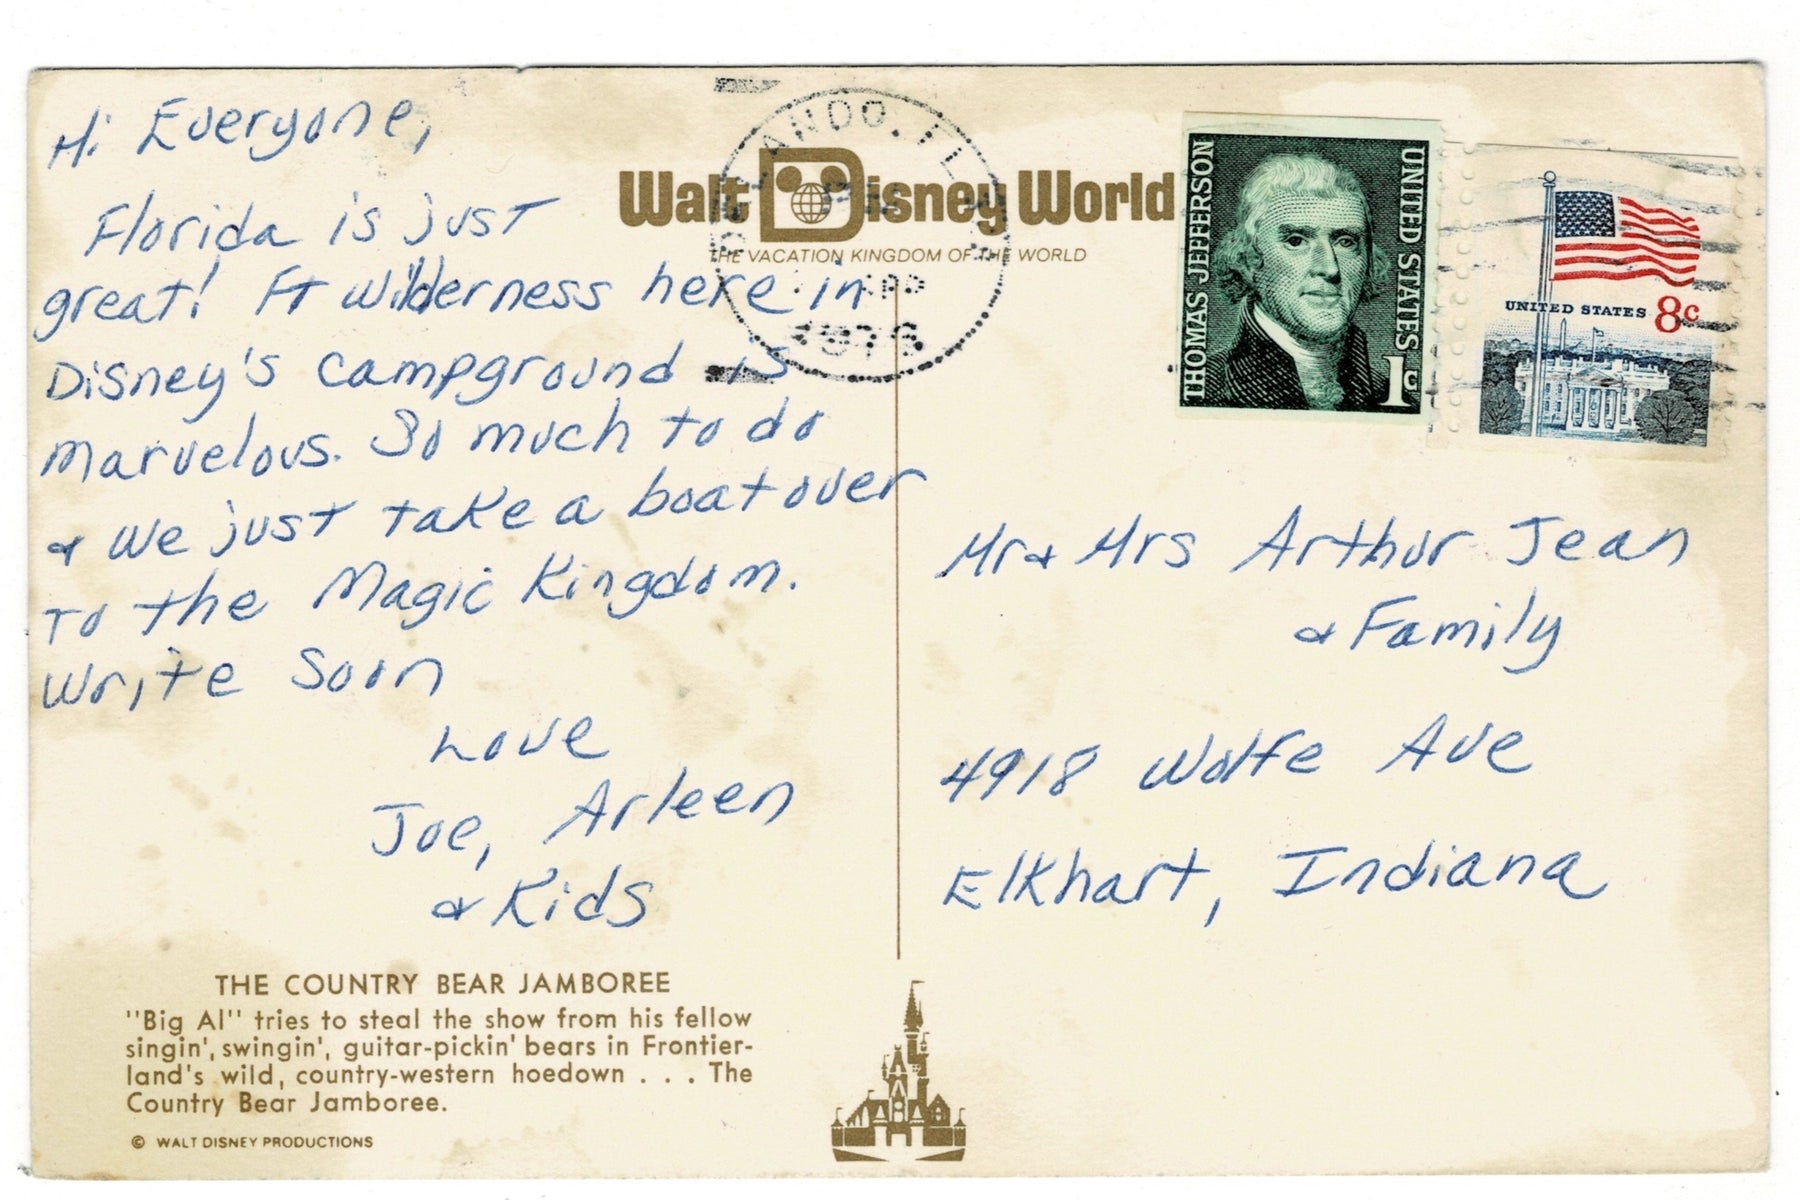 Hi Everyone,
Florida is just
great! Ft Wilderness here in
Disney's campground is
marvelous. So much to do
& we just take a boat over
to the Magic Kingdom.
Write soon
Love
Joe, Arleen
& Kids
THE COUNTRY BEAR JAMBOREE
"Big Al" tries to steal the show from his fellow
singin', swingin', guitar-pickin' bears in Frontier-
land's wild, country-western hoedown . . . The
Country Bear Jamboree.
© WALT DISNEY PRODUCTIONS
Walt Disney World
THE VACATION KINGDOM OF THE WORLD
ORLANDO, FL
THOMAS JEFFERSON
UNITED STATES
1c
UNITED STATES 8c
Mr & Mrs Arthur Jean
& Family
4918 Wolfe Ave
Elkhart, Indiana